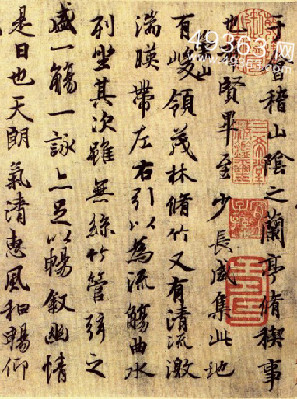 49363网
www.49363.com
于稽山陰之蘭亭脩禊事
也賢畢至少長咸集此地
有峻領茂林脩竹又有清流激
湍暎帶左右引以為流觴曲水
列坐其次雖無絲竹管弦之
盛一觴一詠亦足以暢叙幽情
是日也天朗氣清惠風和暢仰